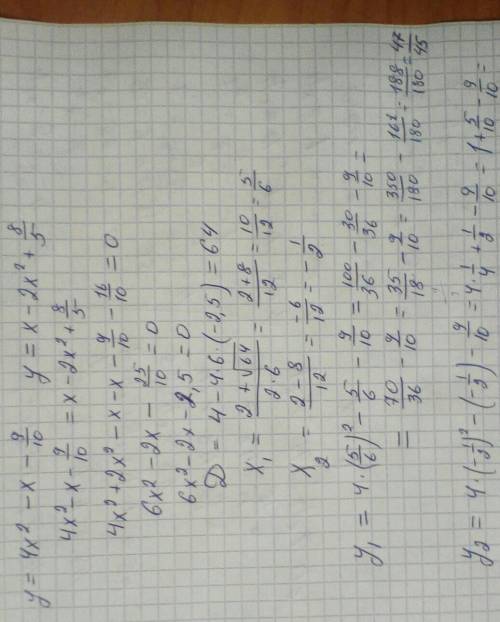 y = 4x² - x - 9/10   y = x - 2x² + 8/5
4x² - x - 9/10 = x - 2x² + 8/5
4x² + 2x² - x - x - 9/10 - 16/10 = 0
6x² - 2x - 25/10 = 0
6x² - 2x - 2,5 = 0
D = 4 - 4·6·(-2,5) = 64
x₁ = (2 + √64)/(2·6) = (2+8)/12 = 10/12 = 5/6
x₂ = (2 - 8)/12 = -6/12 = -1/2
y₁ = 4·(5/6)² - 5/6 - 9/10 = 100/36 - 30/36 - 9/10 =
= 70/36 - 9/10 = 35/18 - 9/10 = 350/180 - 162/180 = 188/180 = 47/45
y₂ = 4·(-1/2)² - (-1/2) - 9/10 = 4·1/4 + 1/2 - 9/10 = 1 + 5/10 - 9/10 =